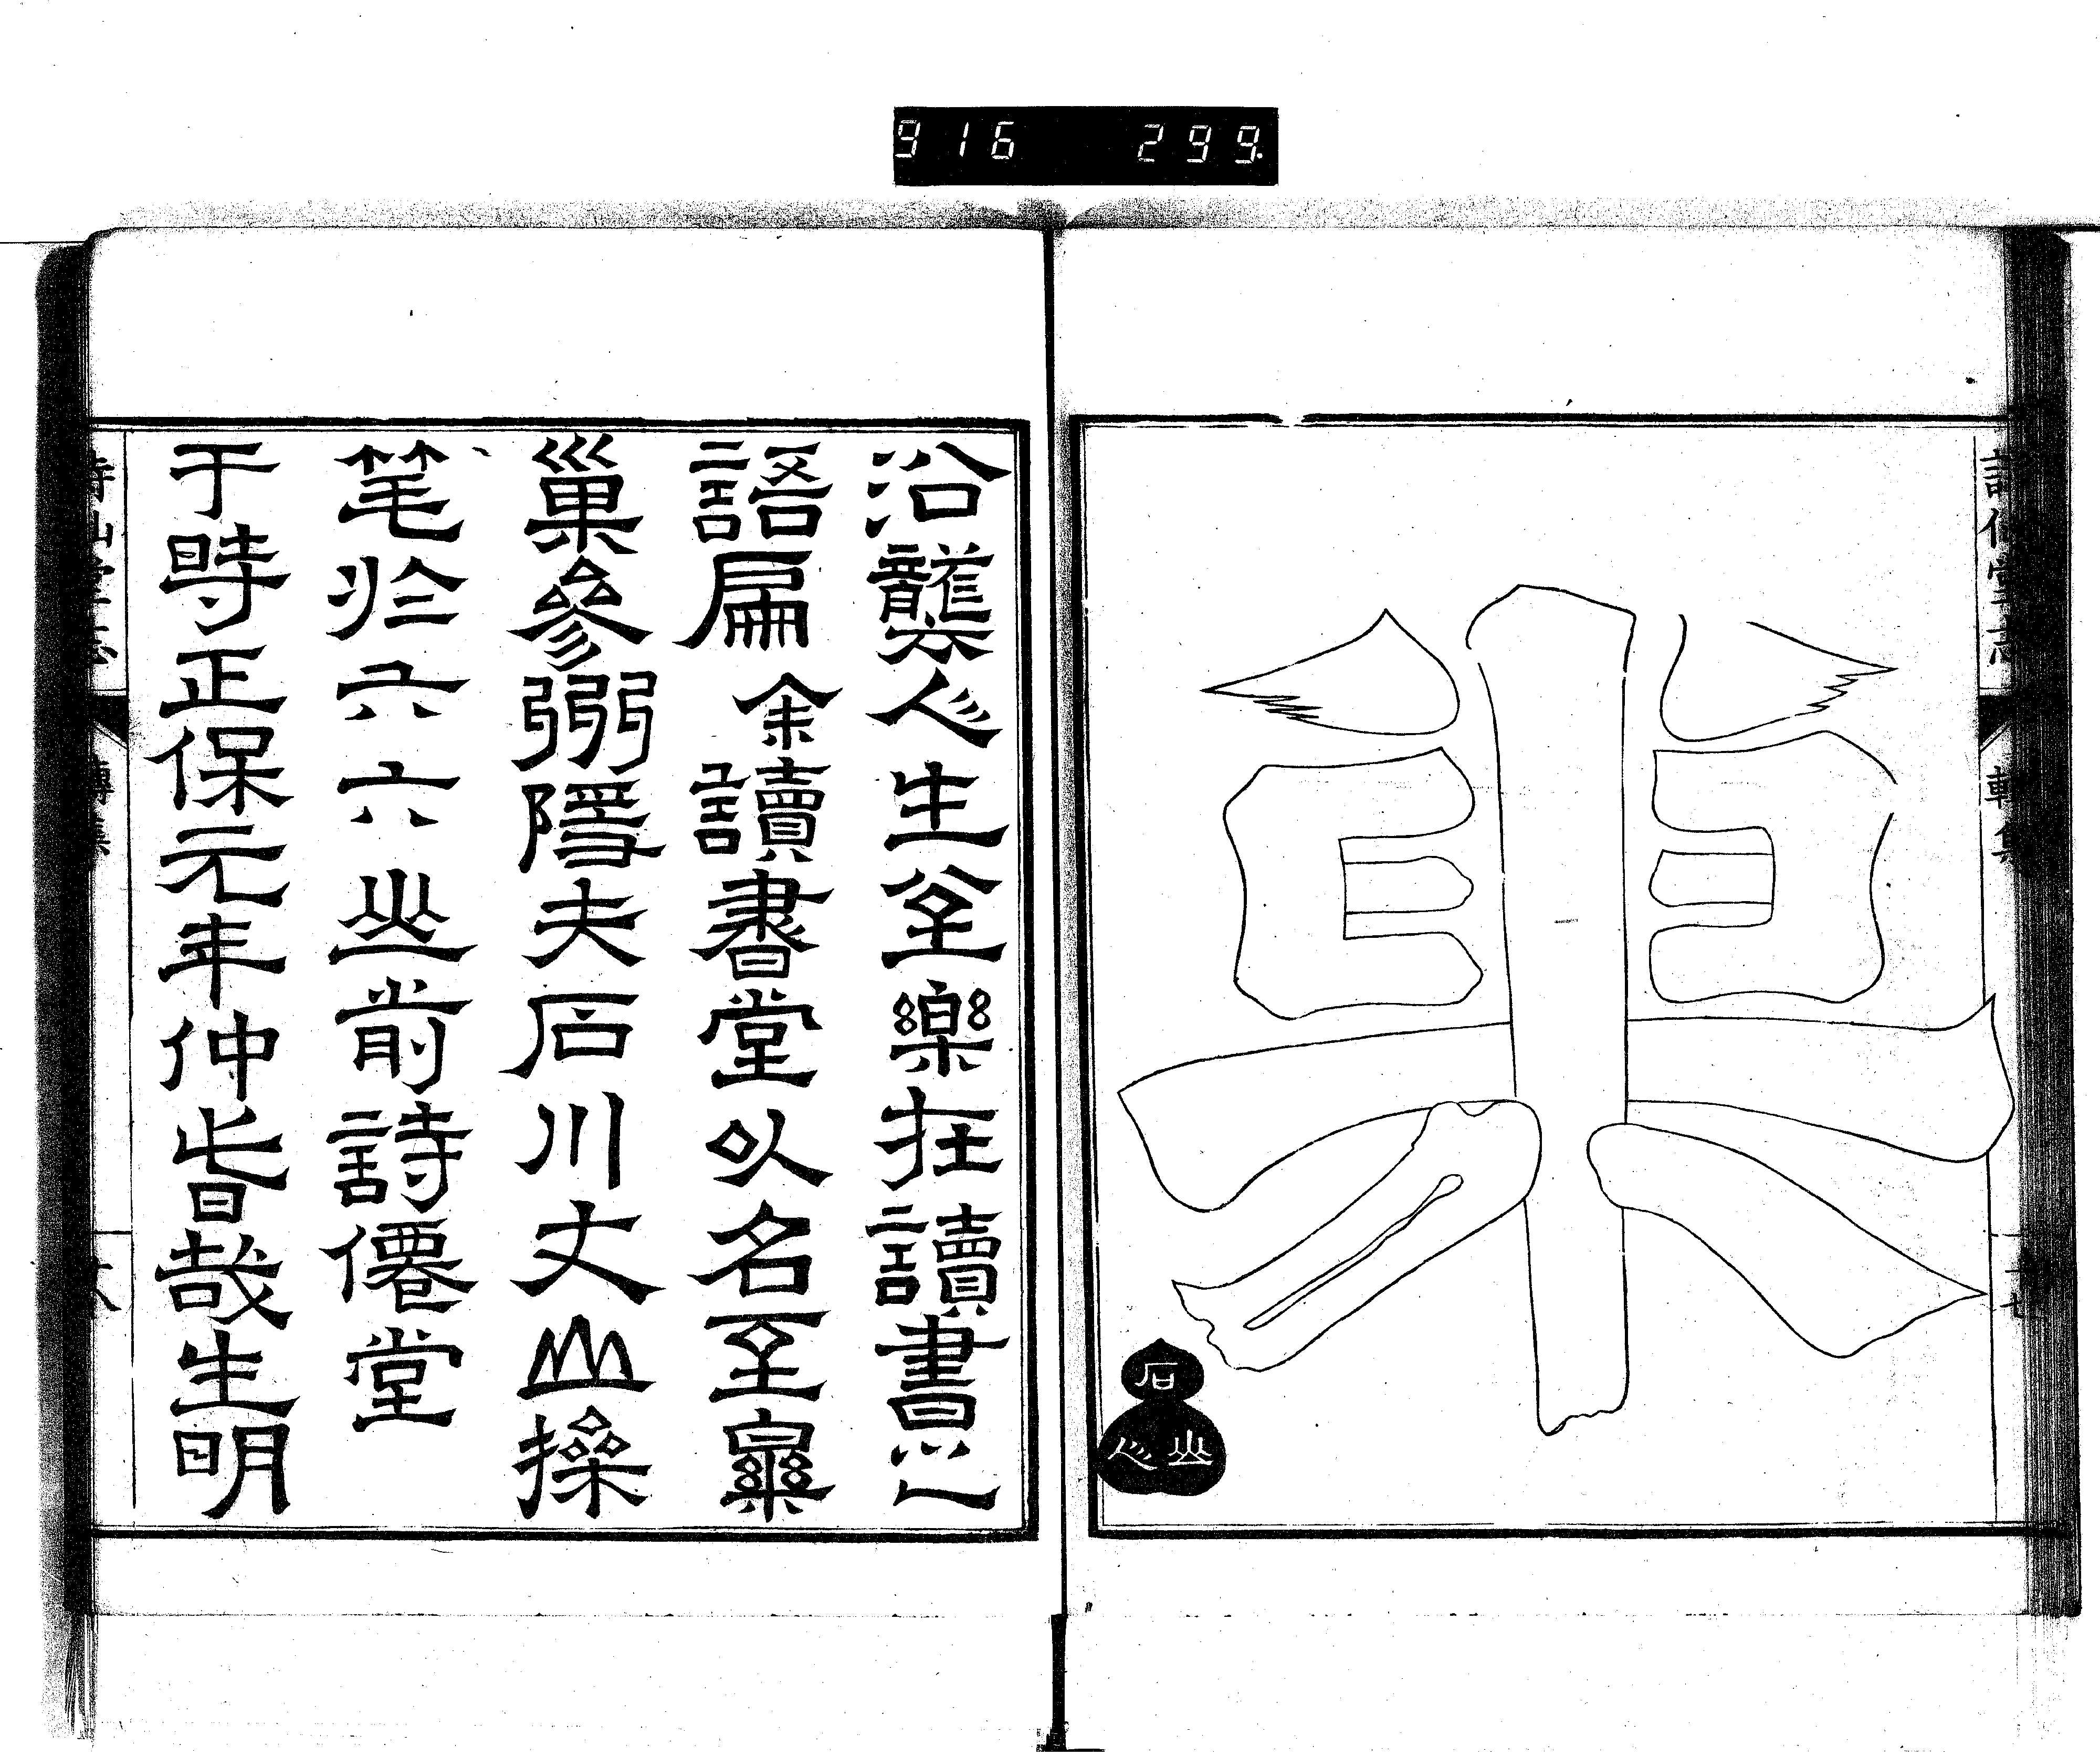 916 299
詩仙堂志
巢
石
山人
沿襲人生至樂在讀書之
語扁余讀書堂以名至樂
巢參彌隱夫石川丈山操
筆於六六山前詩僊堂
于時正保元年仲旹哉生明